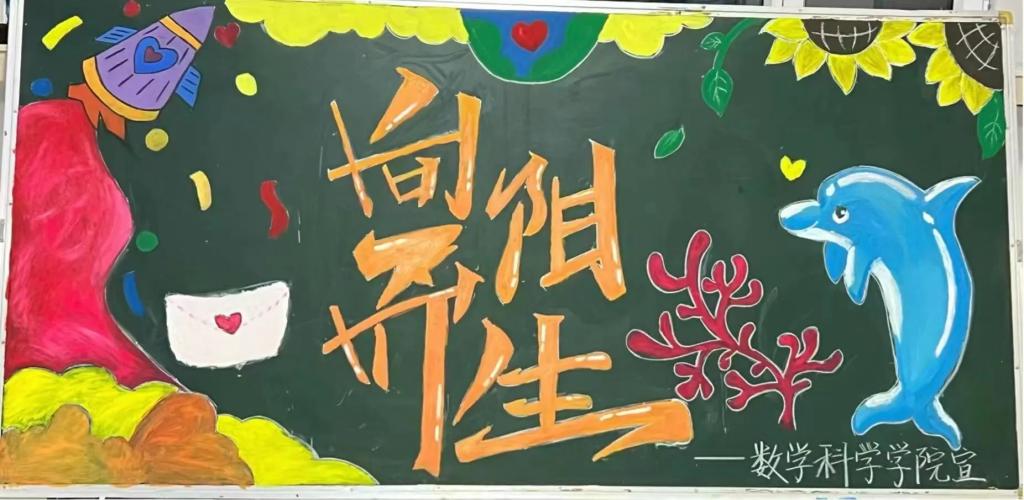 向阳
而生
——数学科学学院宣